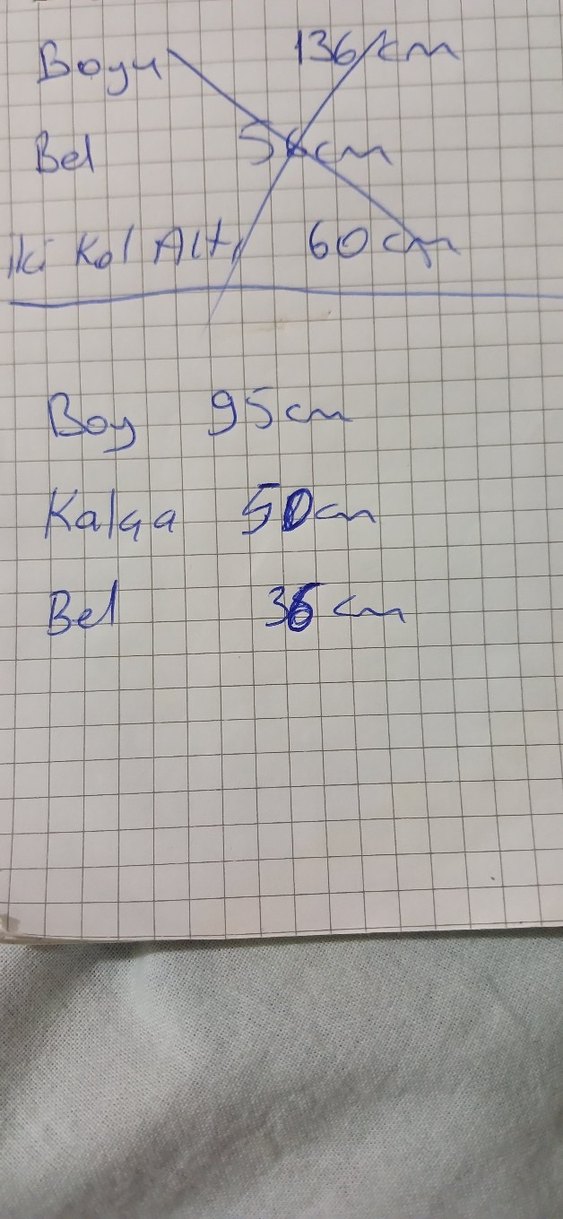 Boyu 136 cm
Bel 56 cm
iki Kol Altı 60 cm
Boy 95 cm
Kalça 50 cm
Bel 36 cm